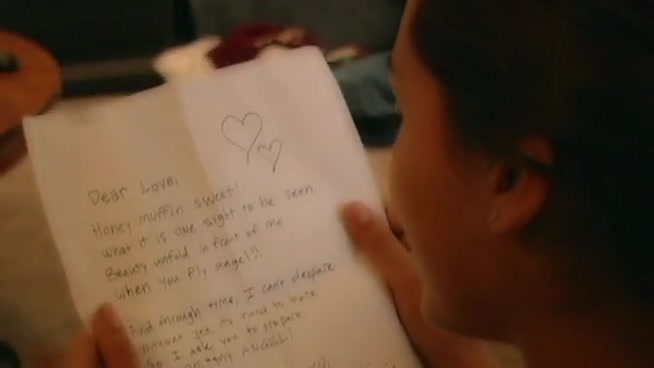 Dear Love,
Honey muffin sweet!
what it is one sight to be seen
Beauty unfold in front of me
when you fly angel!?
And through time, I can't despare
it's hard to
So I ask you to prepare
ANGEL!